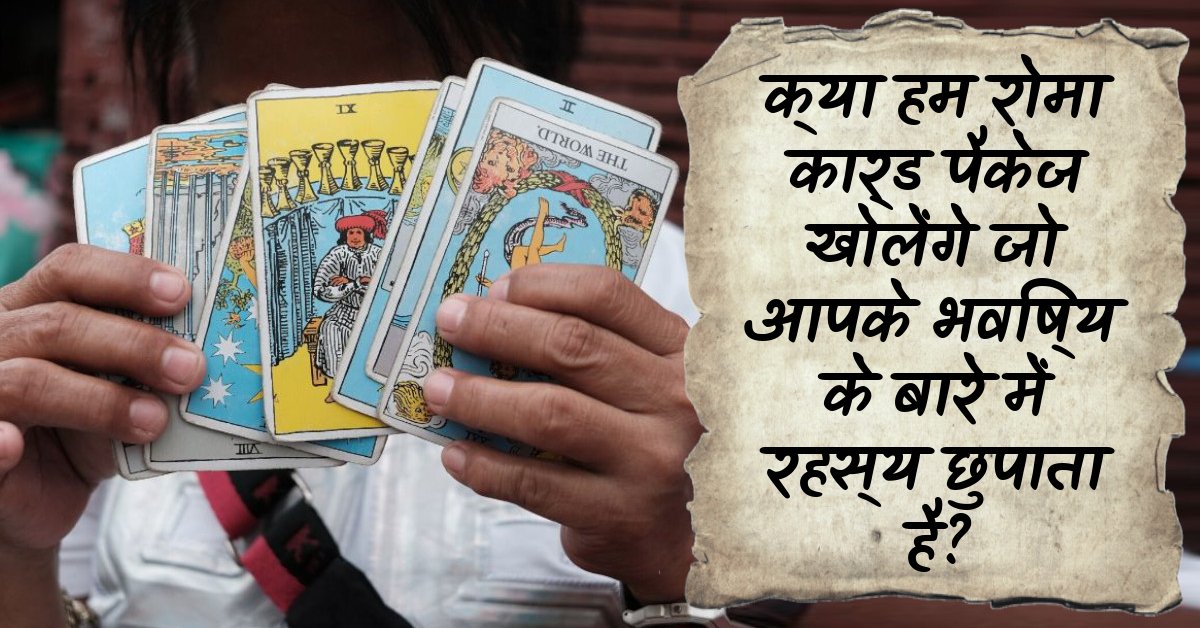 XI
II
THE WORLD.
क्या हम रोमा
कार्ड पैकेज
खोलेंगे जो
आपके भविष्य
के बारे में
रहस्य छुपाता
है?